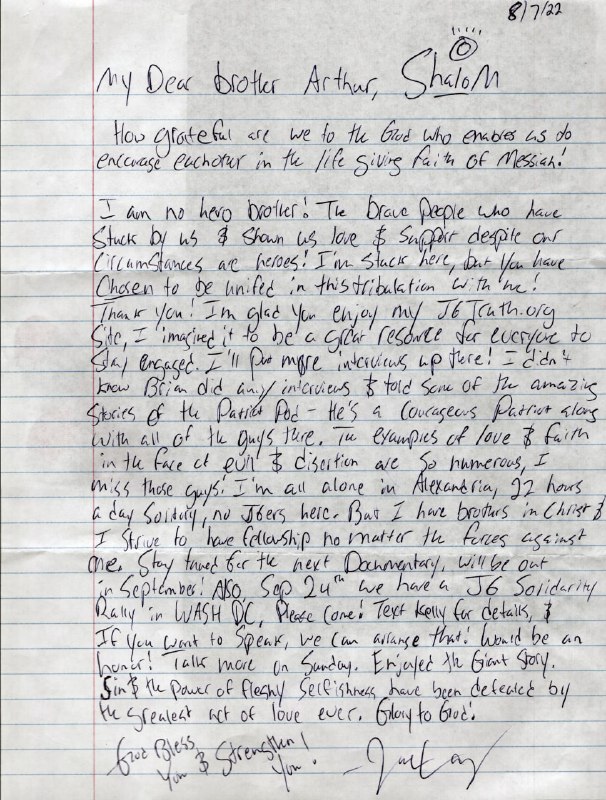 8/7/22
My Dear brother Arthur, Shalom
How grateful are we to the God who enables us do
encourage eachother in the life giving faith of Messiah!
I am no hero brother! The brave people who have
stuck by us & shown us love & support despite our
circumstances are heroes! I'm stuck here, but you have
chosen to be unified in this tribulation with me!
Thank you! I'm glad you enjoy my J6Truth.org
site, I imagined it to be a great resource for everyone to
stay engaged. I'll put more interviews up there! I didn't
know Brian did any interviews & told some of the amazing
stories of the Patriot Pod - He's a courageous Patriot along
with all of the guys there. The examples of love & faith
in the face of evil & disertion are so numerous, I
miss those guys! I'm all alone in Alexandria, 22 hours
a day Solidary, no J6ers here. But I have brothers in Christ &
I strive to have fellowship no matter the forces against
me. Stay tuned for the next Documentary, will be out
in September! Also, Sep 24th we have a J6 Solidarity
Rally in WASH DC, Please come! Text Kelly for details, &
If you want to speak, we can arrange that! Would be an
honor! Talk more on Sunday. Enjoyed the Giant Story.
Sin & the power of fleshy selfishness have been defeated by
the greatest act of love ever. Glory to God!
God Bless
You & Strengthen
You!